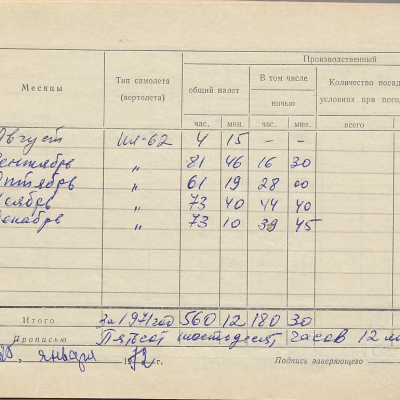 Производственный
Месяцы
Тип самолета
(вертолета)
общий налет
В том числе
ночью
Количество посад
условиях при погод
час. мин. час. мин. всего
Август Ил-62 4 15 - -
Сентябрь " 81 46 16 30
Октябрь " 61 19 28 00
Ноябрь " 73 40 44 40
Декабрь " 73 10 39 45
Итого За 1971 год 560 12 180 30
Прописью Пятьсот шестьдесят часов 12 ми
января 1972 г. Подпись заверяющего